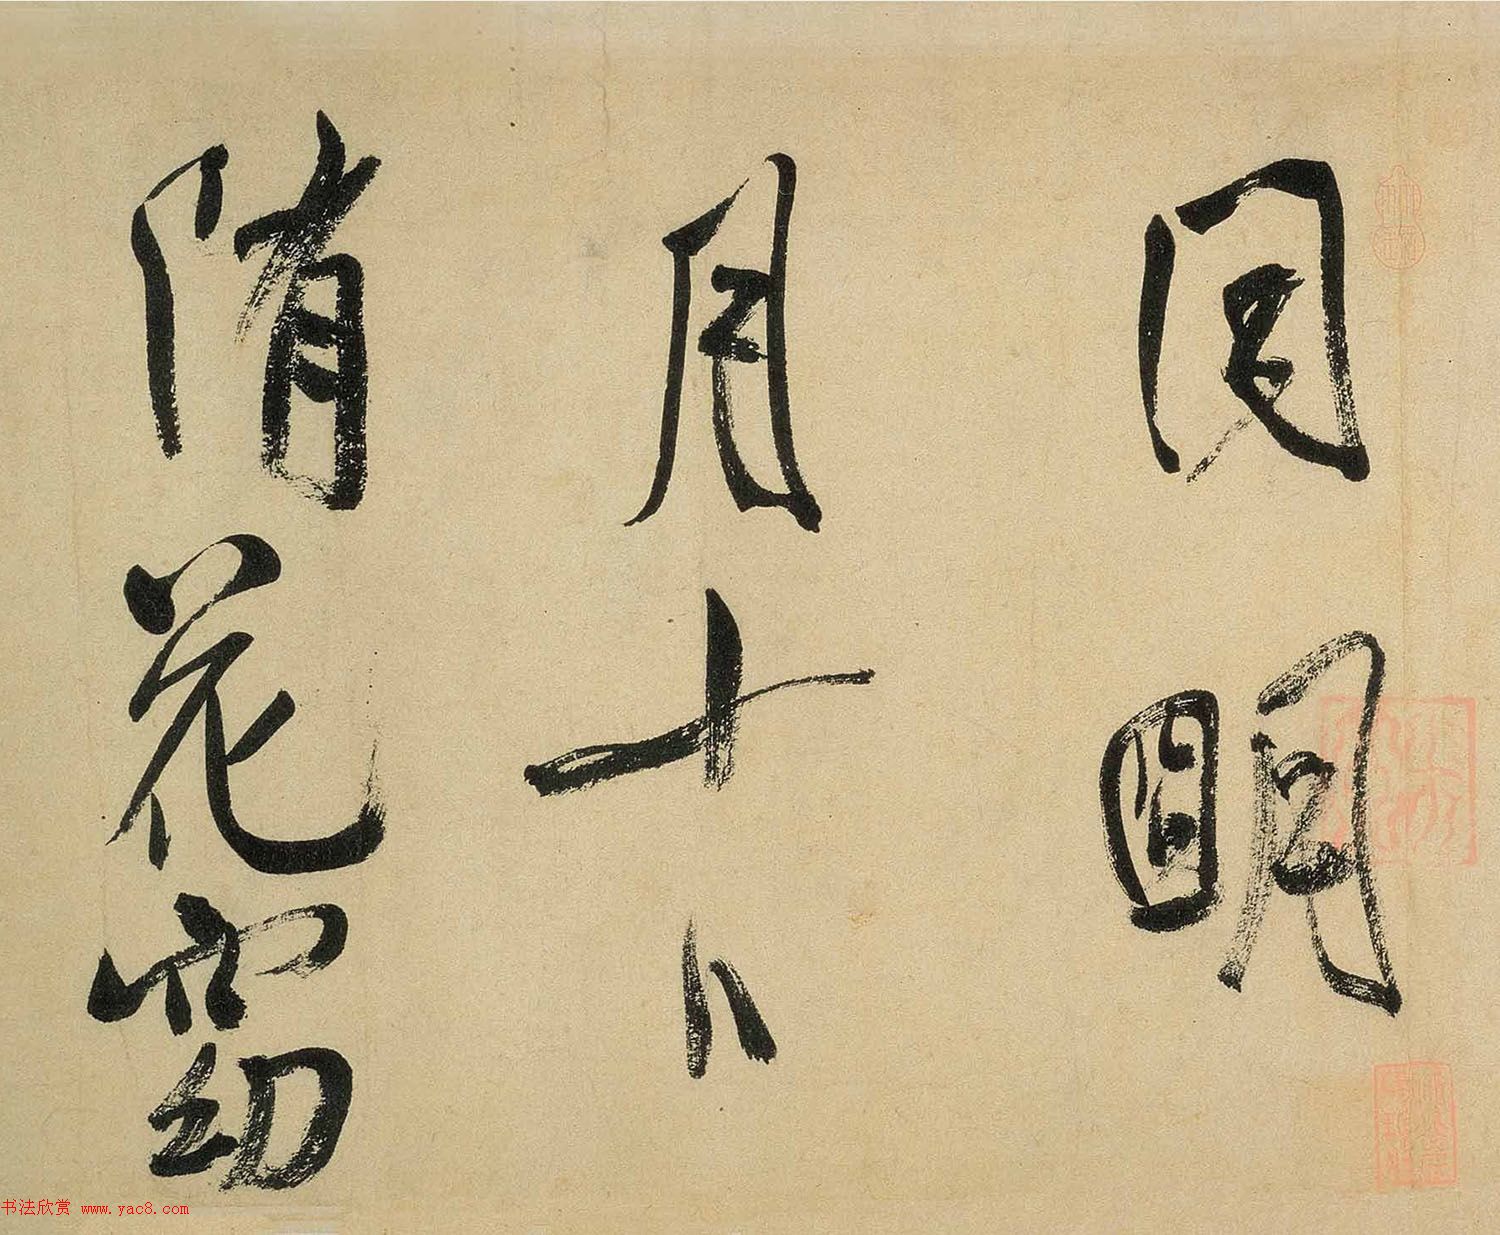 明
月十八
隋花窈
书法欣赏 www.yac8.com